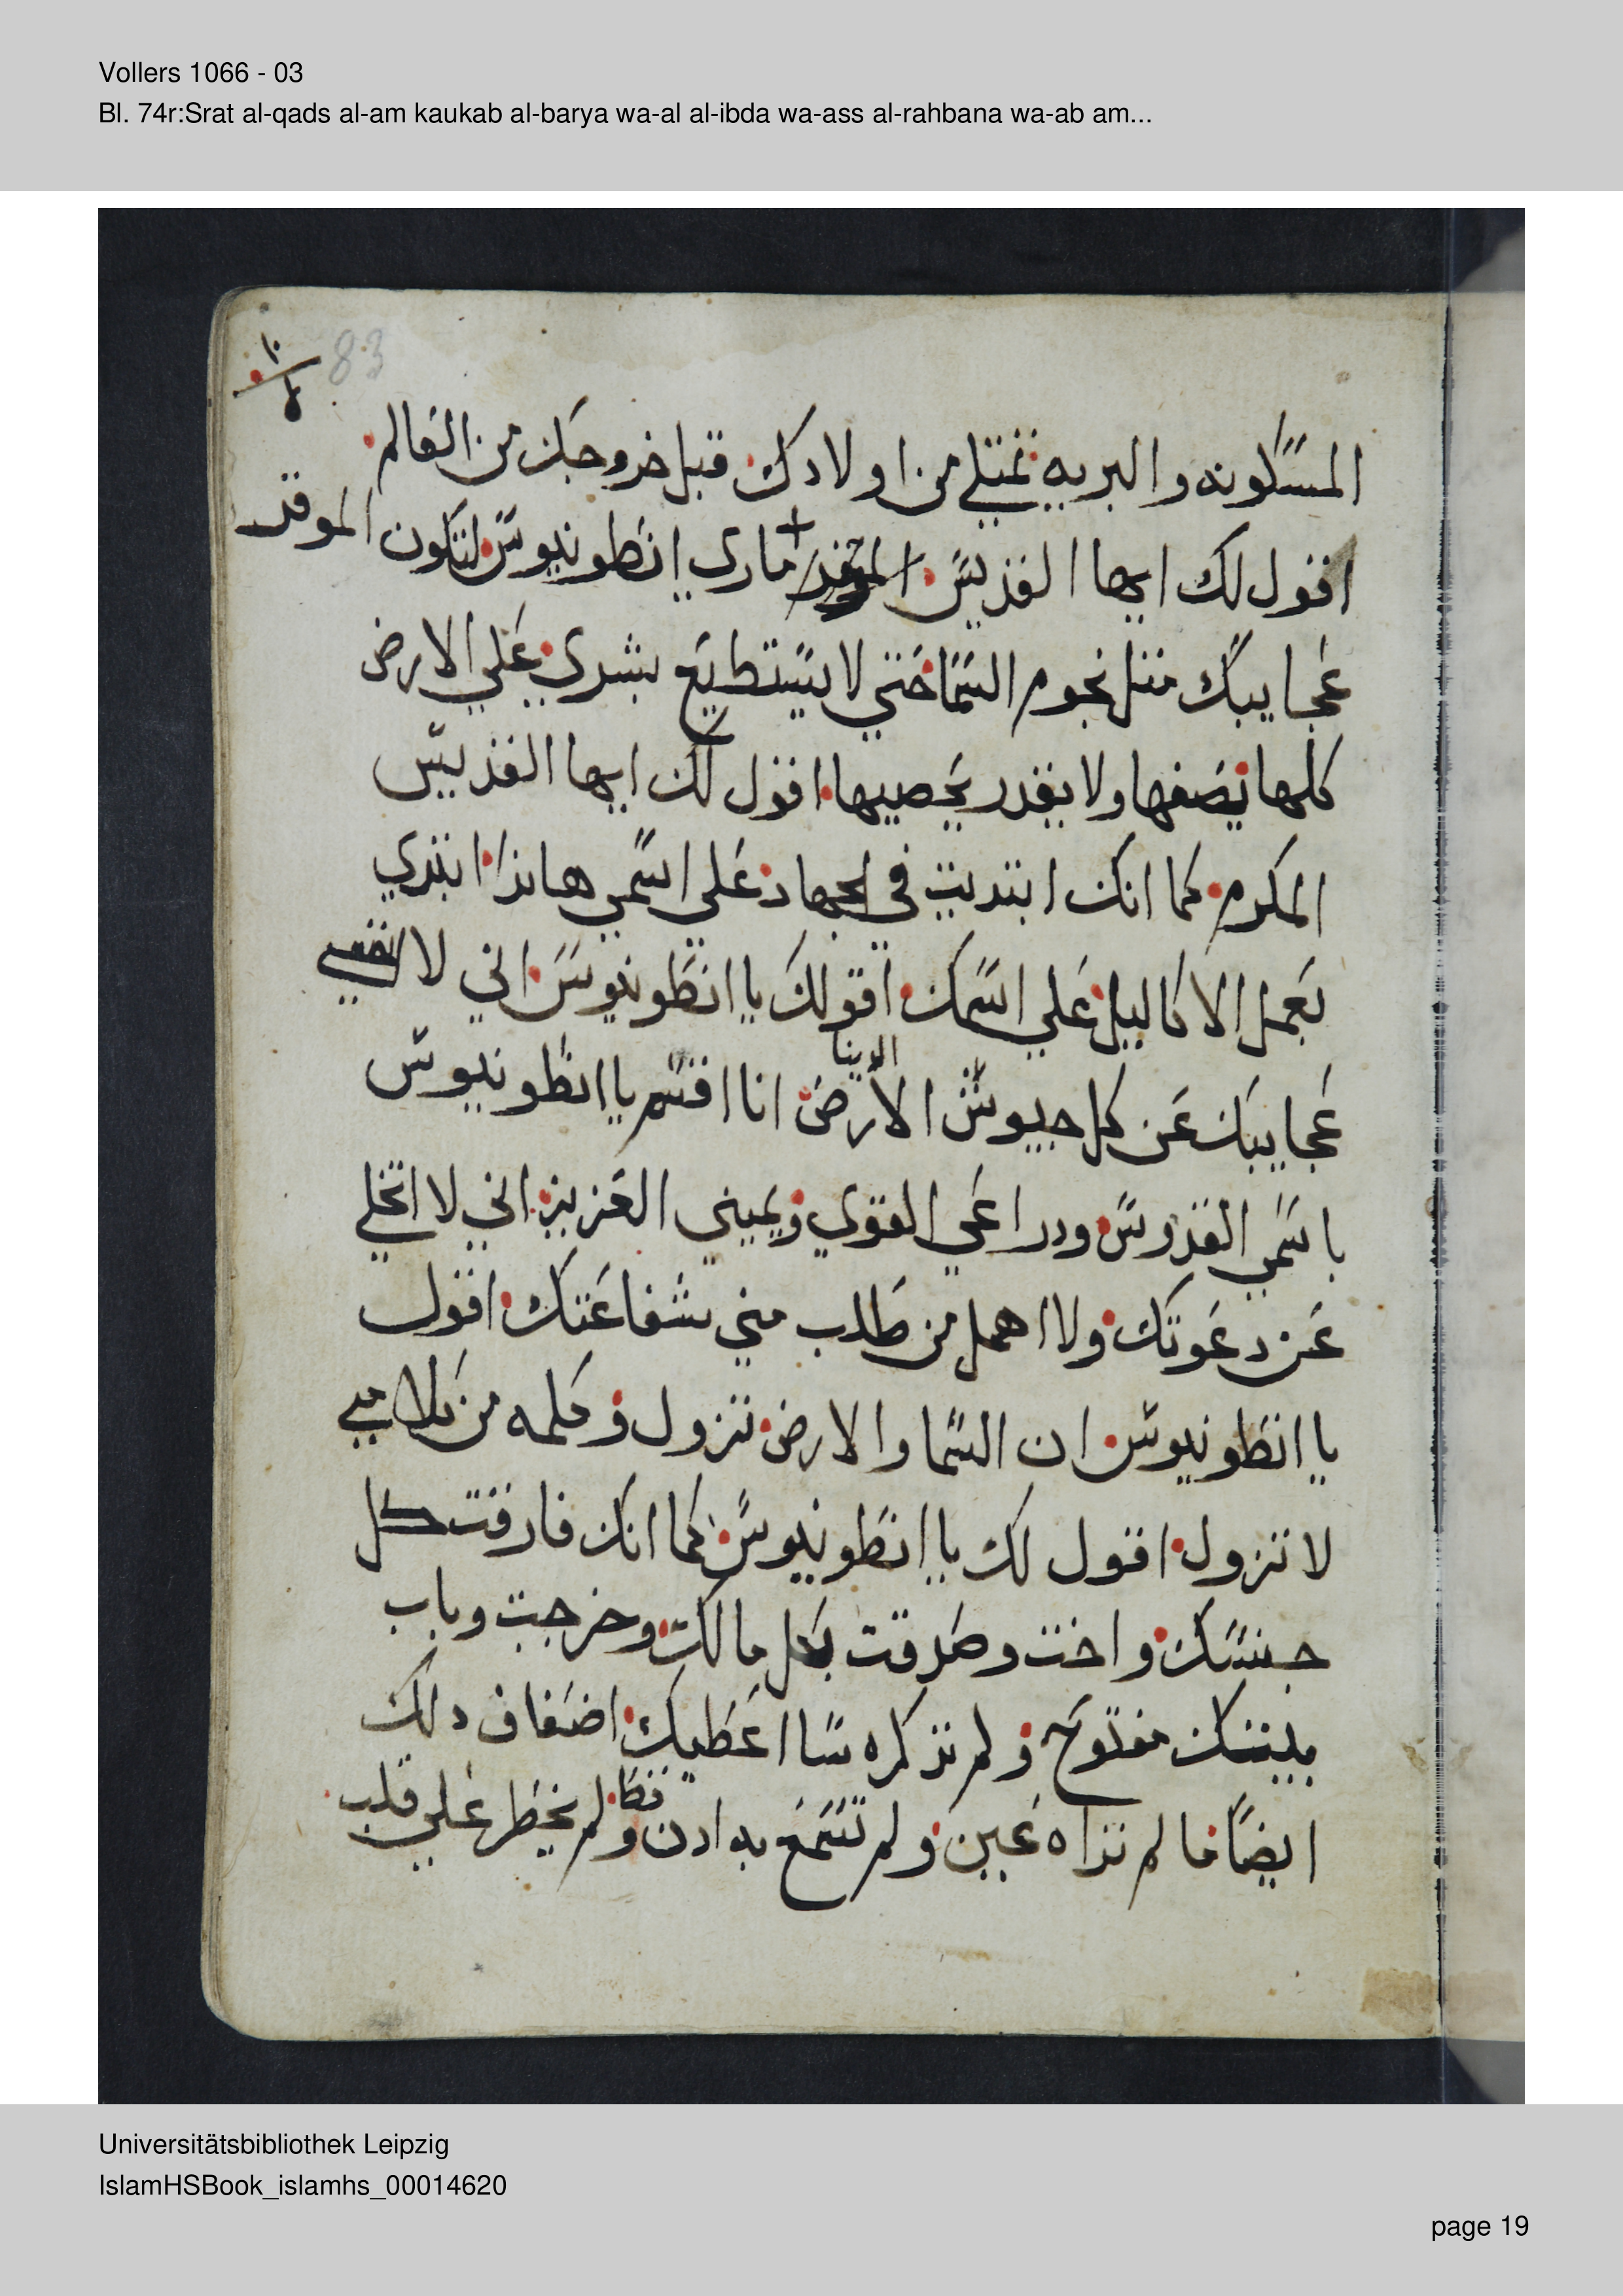 Vollers 1066 - 03
Bl. 74r:Srat al-qads al-am kaukab al-barya wa-al al-ibda wa-ass al-rahbana wa-ab am...
83
المسكونه والبريه تمتلي من اولادك قبل خروجك من العالم
اقول لك ايها القديس ماري انطونيوس لتكون الموقد
عجايبك مثل نجوم السما حتي لا يستطيع بشري علي الارض
كلها يصفها ولا يقدر يحصيها اقول لك ايها القديس
المكرم كما انك ابتديت في الجهاد علي اسمي هاندا ابتدي
بعمل الاكاليل علي اسمك اقولك يا انطونيوس اني لا
عجايبك عن كل جيوش الارض انا اقسم يا انطونيوس
باسمي القدوس ودراعي القوي ويميني العزيز اني لا اتخلي
عن دعوتك ولا اهمل من طلب مني بشفاعتك اقول
يا انطونيوس ان السما والارض تزول وكلمه من كلامي
لا تزول اقول لك يا انطونيوس كما انك فارقت كل
جنسك واخت وصدقت بكل مالك وخرجت وباب
بيتك مفتوح ولم تذكره سا اعطيك اضعاف دلك
ايضا ما لم تراه عين ولم تسمع به ادن قط ولم يخطر علي قلب
Universitätsbibliothek Leipzig
IslamHSBook_islamhs_00014620
page 19